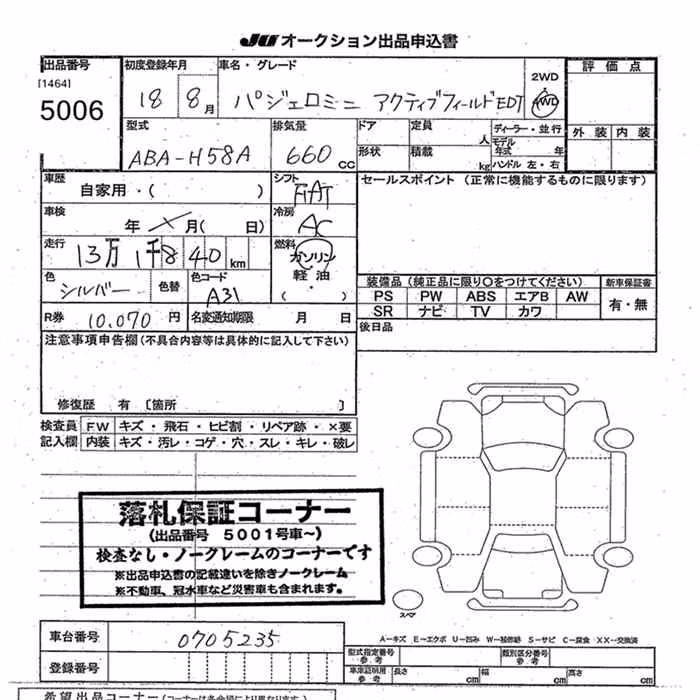 JU オークション出品申込書
出品番号 初度登録年月 車名・グレード 2WD 評価点
[1464]
5006 18 8月 パジェロミニ アクティブフィールドEDT 4WD
型式 排気量 ドア 定員 人 ディーラー・並行 外装 内装
モデル年式 年
ABA-H58A 660cc 形状 積載 kg ハンドル 左・右
車歴 自家用・( ) シフト FAT セールスポイント (正常に機能するものに限ります)
車検 年 × 月( 日) 冷房 AC
走行 13万 1千840km 燃料 ガソリン
軽油
・
( )
色 シルバー 色替 色コード A31
装備品 (純正品に限り○をつけてください) 新車保証書
PS PW ABS エアB AW 有・無
SR ナビ TV カワ
R券 10,070円 名変通知期限 月 日
後日品
注意事項申告欄(不具合内容等は具体的に記入して下さい)
修復歴 有 〔箇所 〕
検査員 FW キズ・飛石・ヒビ割・リペア跡・×要
記入欄 内装 キズ・汚レ・コゲ・穴・スレ・キレ・破レ
落札保証コーナー
(出品番号 5001号車~)
検査なし・ノークレームのコーナーです
※出品申込書の記載違いを除きノークレーム
※不動車、冠水車など災害車も含まれます。
スペア
A-キズ E-エクボ U-凹み W-補修跡 S-サビ C-腐食 XX-交換済
車台番号 0705235
型式指定番号 参考 類別区分番号 参考
登録番号
車庫証明用 参考 長さ cm 幅 cm 高さ cm
希望出品コーナー